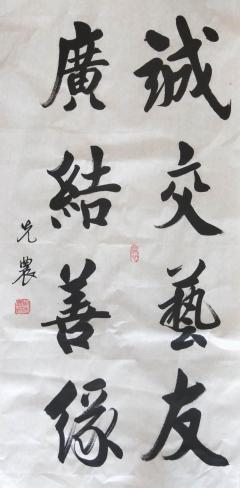 誠交藝友
廣結善緣
允農